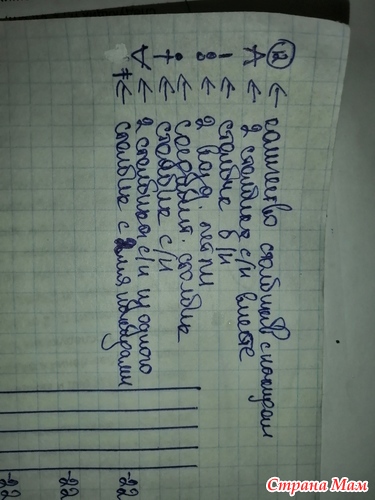 (12) ← количество столбиков с накидом
A ← 2 столбика с/н вместе
I ← столбик б/н
8 ← 2 возд. петли
• ← соедин. столбик
† ← столбик с/н
V ← 2 столбика с/н из одного
← столбик с 2мя накидами
-22
-22
-22
Страна Мам